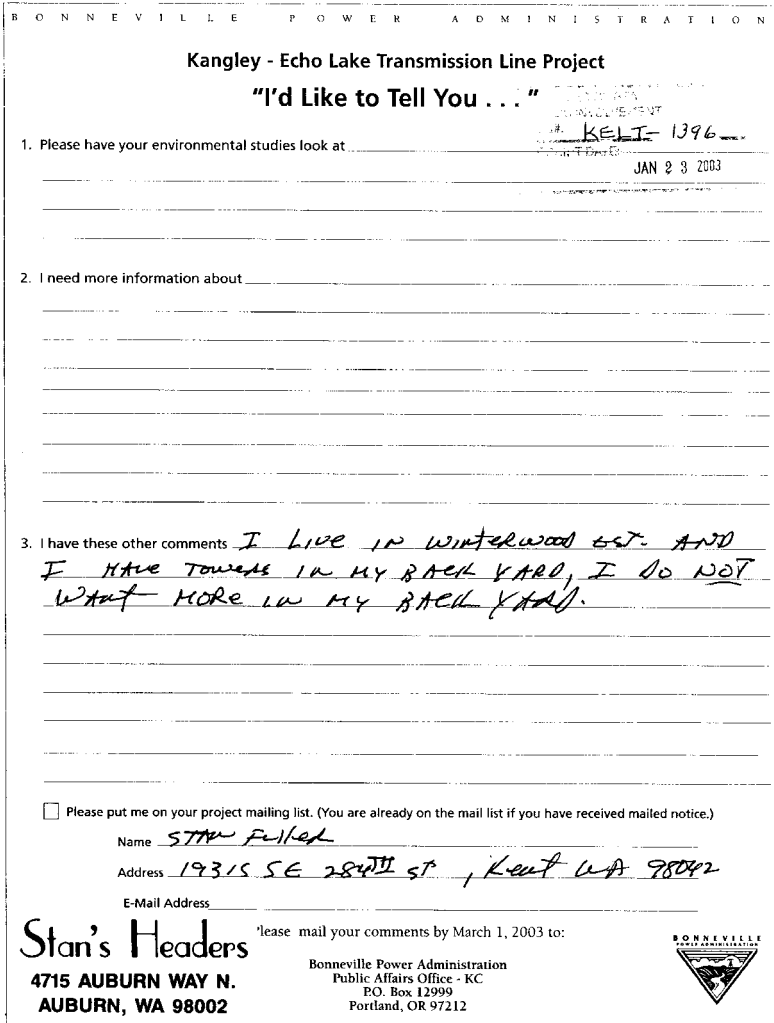 BONNEVILLE POWER ADMINISTRATION
Kangley - Echo Lake Transmission Line Project
"I'd Like to Tell You . . . "
KELT- 1396
1. Please have your environmental studies look at
JAN 2 3 2003
2. I need more information about
3. I have these other comments I LIVE IN WINTERWOOD EST. AND
I HAVE TOWERS IN MY BACK YARD, I DO NOT
WANT MORE IN MY BACK YARD.
Please put me on your project mailing list. (You are already on the mail list if you have received mailed notice.)
Name STAN Fuller
Address 19315 SE 284TH ST, Kent WA 98042
E-Mail Address
Stan's Headers
4715 AUBURN WAY N.
AUBURN, WA 98002
'lease mail your comments by March 1, 2003 to:
Bonneville Power Administration
Public Affairs Office - KC
P.O. Box 12999
Portland, OR 97212
BONNEVILLE
POWER ADMINISTRATION